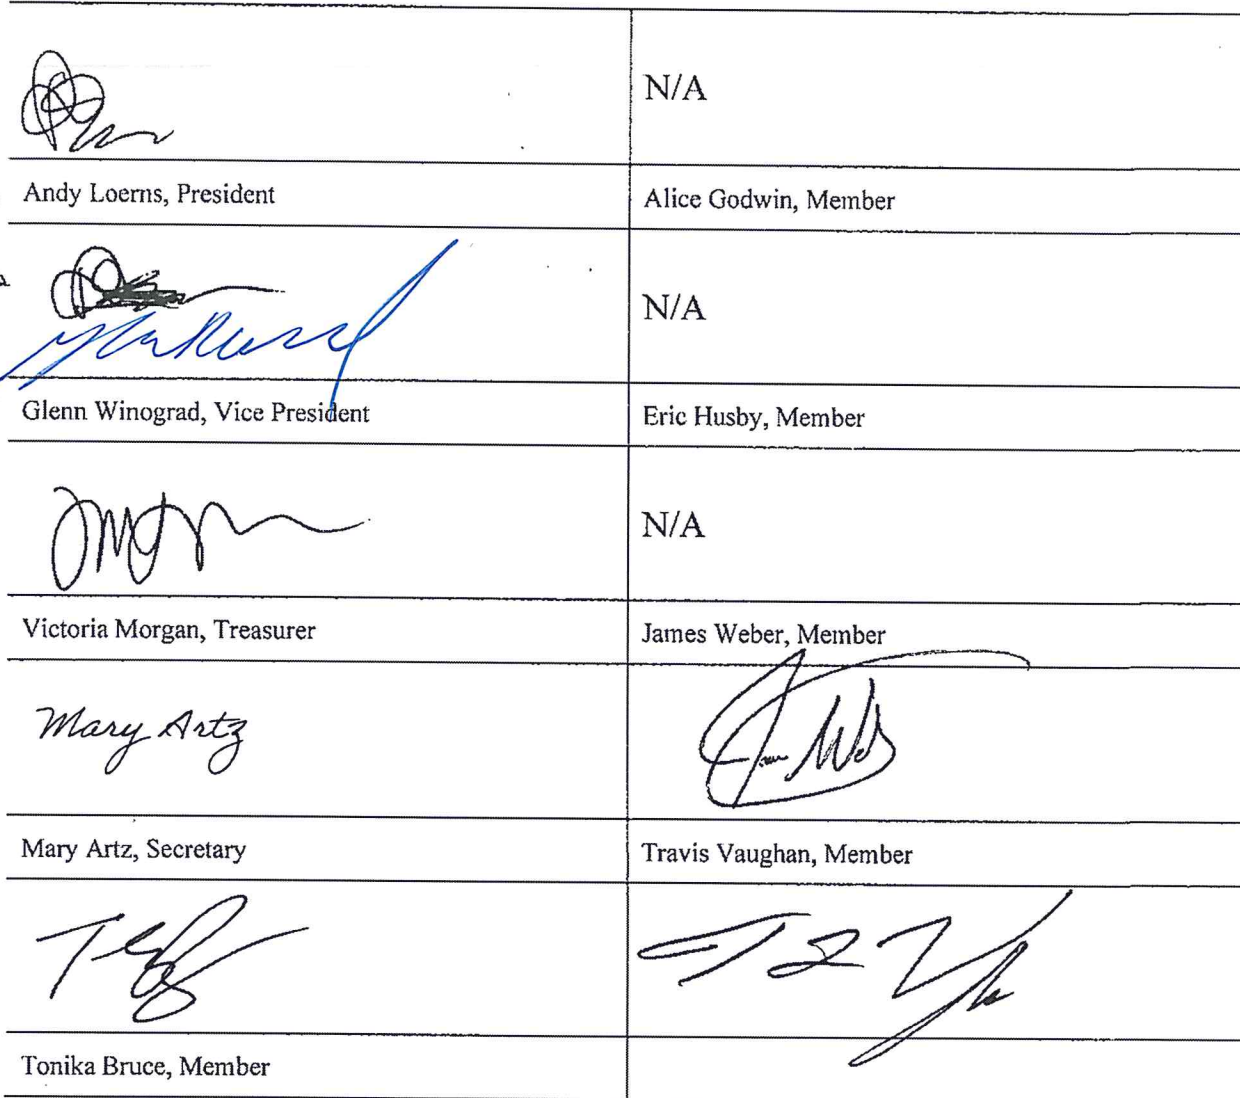 N/A
Andy Loerns, President
Alice Godwin, Member
N/A
Glenn Winograd, Vice President
Eric Husby, Member
N/A
Victoria Morgan, Treasurer
James Weber, Member
Mary Artz
Mary Artz, Secretary
Travis Vaughan, Member
Tonika Bruce, Member